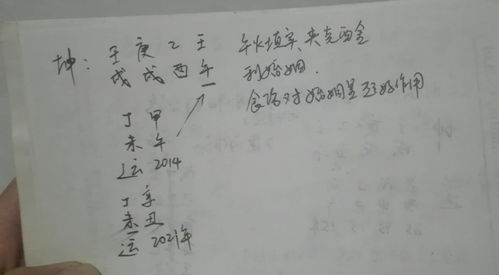 坤：壬庚乙壬
戌戌酉午
午火填实，夹克酉金
利婚姻.
食伤对婚姻是起好作用
丁甲
未午
运2014
丁辛
未丑
运2021年